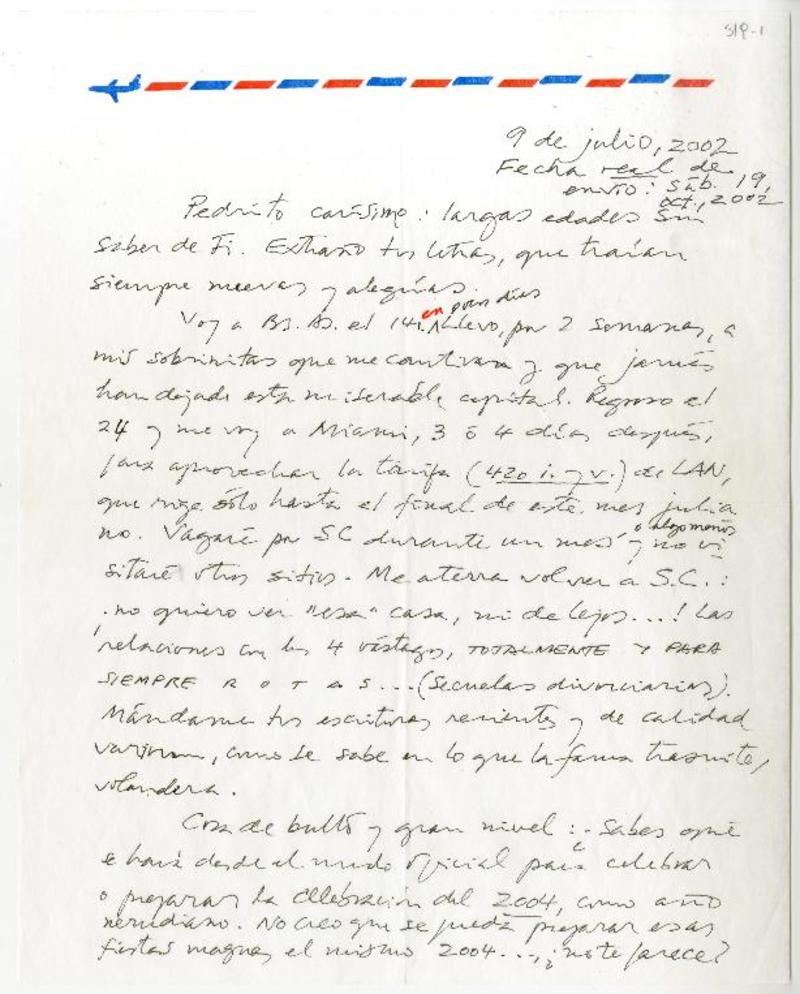 319-1
9 de julio, 2002
Fecha real de
envío: sáb. 19,
oct., 2002
Pedrito carísimo: largas edades sin
saber de Ti. Extraño tus letras, que traían
siempre nuevas y alegrías.
en pocos días
Voy a Bs. As. el 14. Llevo, por 2 semanas, a
mis sobrinitas que me cautivan y que jamás
han dejado esta miserable capital. Regreso el
24 y me voy a Miami, 3 ó 4 días después,
para aprovechar la tarifa (420 i. y v.) de LAN,
que rige sólo hasta el final de este mes julia
no. Vagaré por SC durante un mes y no vi
ó algo menos
sitaré otros sitios. Me aterra volver a S.C.:
¡no quiero ver "esa" casa, ni de lejos...! Las
relaciones con los 4 vástagos, TOTALMENTE Y PARA
SIEMPRE R O T A S... (Secuelas divorciarias).
Mándame tus escrituras recientes y de calidad
, como se sabe en lo que la fama trasmite,
volandera.
Cosa de bulto y gran nivel: ¿Sabes qué
se hará desde el mundo oficial para celebrar
o preparar la celebración del 2004, como año
nerudiano. No creo que se pueda preparar esas
fiestas magnas el mismo 2004..., ¿no te parece?